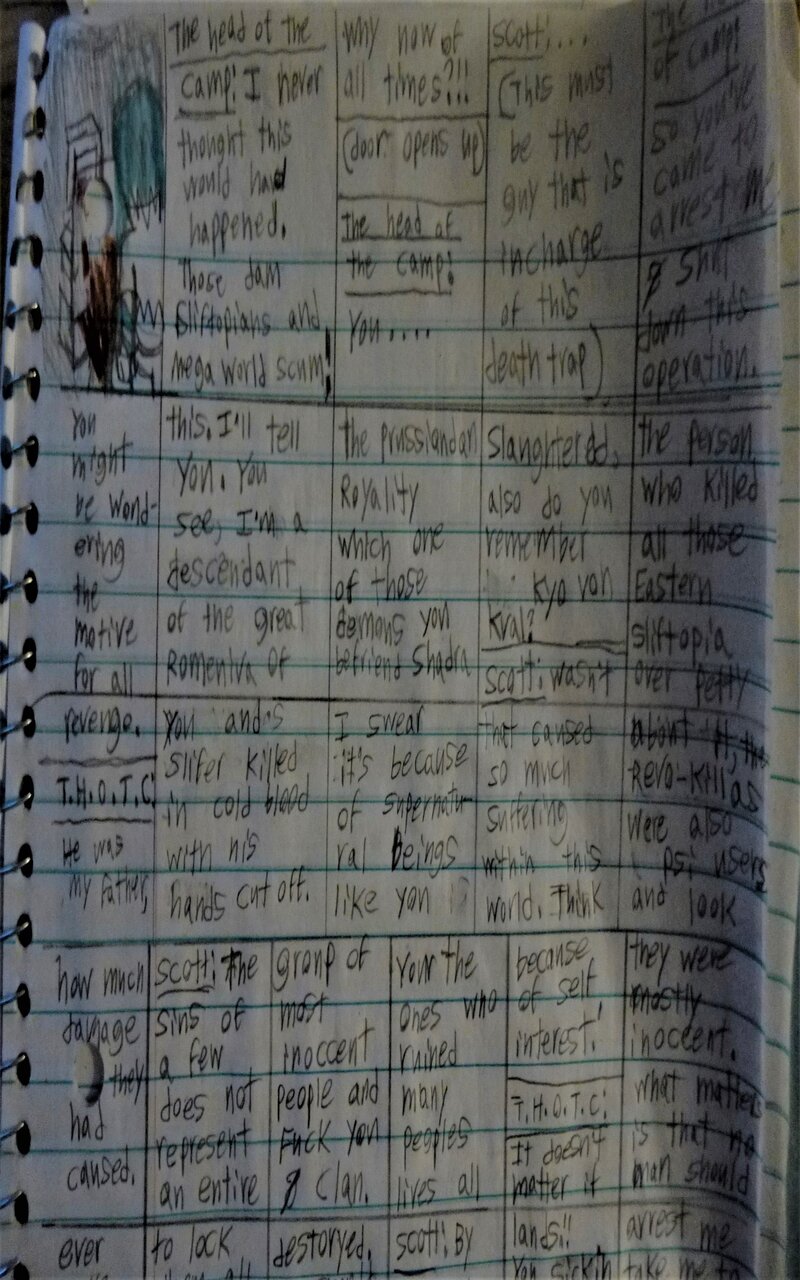 The head of the
camp: I never
thought this
would had
happened.
Those dam
Sliftopians and
mega world scum!
why now of
all times?!!
(door opens up)
The head of
the camp:
You....
scott:...
(This must
be the
guy that is
incharge
of this
death trap)
of camp:
so you've
come to
arrest me
& Shut
down this
operation.
You
might
be wond-
ering
the
motive
for all
this. I'll tell
You. You
see, I'm a
descendant
of the great
Romeniva Of
the prussiandan
Royality
which one
of those
demons you
befriend Shadra
Slaughterdd,
also do you
remember
Kyo von
Kral?
Scott: wasn't
the person
who killed
all those
Eastern
sliftopia
over petty
revenge.
T.H.O.T.C:
He was
my father,
You and
slifer killed
in cold blood
with his
hands cut off.
I swear
it's because
of supernatu-
ral beings
like you
that caused
so much
suffering
within this
world. Think
about
Revo-killas
were also
psi users
and look
how much
damage
they
had
caused.
scott: The
sins of
a few
does not
represent
an entire
group of
most
inoccent
people and
Fuck you
& Clan.
Your the
ones who
ruined
many
peoples
lives all
because
of self
interest.
T.H.O.T.C:
It doesn't
matter if
they were
mostly
inoccent.
what matters
is that no
man should
ever
to lock
destoryed.
scott: By
lands!!
arrest me
take me to